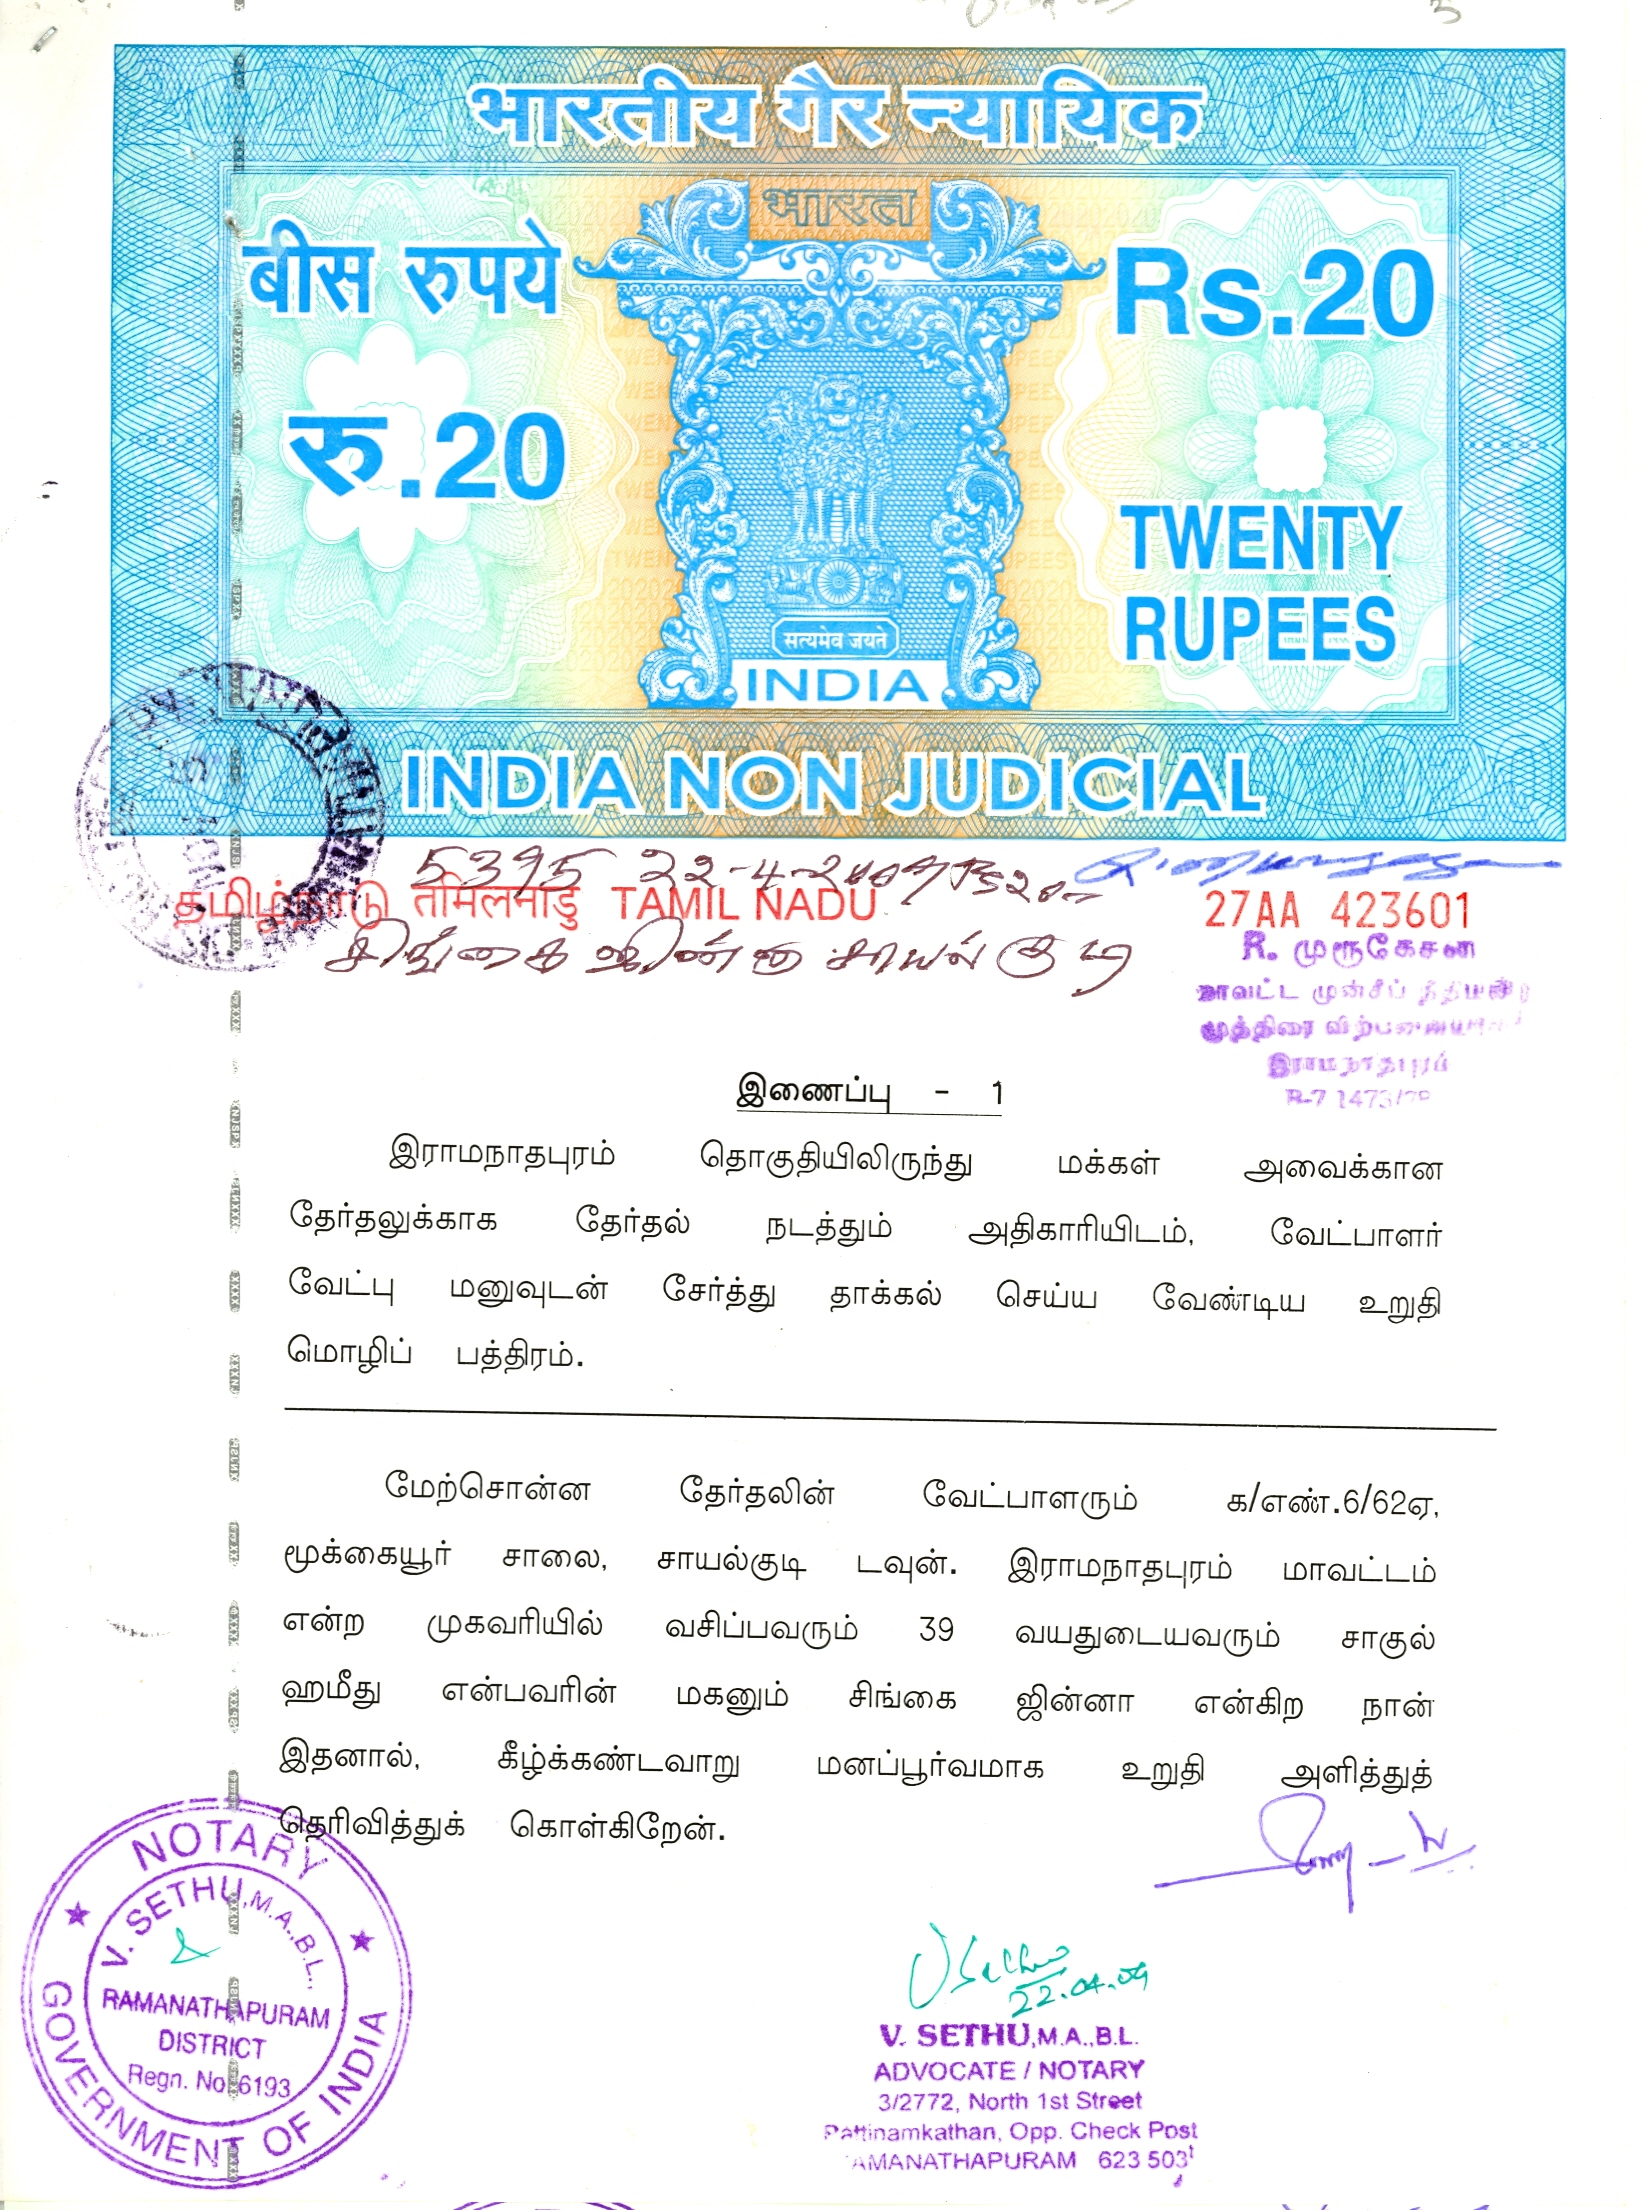 भारतीय गैर न्यायिक
भारत
बीस रुपये
Rs.20
रु.20
TWENTY
RUPEES
सत्यमेव जयते
INDIA
INDIA NON JUDICIAL
5395 22-4-2009 Rs 20
தமிழ்நாடு तमिलनाडु TAMIL NADU
27AA 423601
சிங்கை ஜின்னா சாயல்குடி
R. முருகேசன்
மாவட்ட முன்சீப் நீதிமன்ற
முத்திரை விற்பனையாளர்
இராமநாதபுரம்
இணைப்பு - 1
இராமநாதபுரம் தொகுதியிலிருந்து மக்கள் அவைக்கான
தேர்தலுக்காக தேர்தல் நடத்தும் அதிகாரியிடம், வேட்பாளர்
வேட்பு மனுவுடன் சேர்த்து தாக்கல் செய்ய வேண்டிய உறுதி
மொழிப் பத்திரம்.
மேற்சொன்ன தேர்தலின் வேட்பாளரும் க/எண்.6/62ஏ,
மூக்கையூர் சாலை, சாயல்குடி டவுன். இராமநாதபுரம் மாவட்டம்
என்ற முகவரியில் வசிப்பவரும் 39 வயதுடையவரும் சாகுல்
ஹமீது என்பவரின் மகனும் சிங்கை ஜின்னா என்கிற நான்
இதனால், கீழ்க்கண்டவாறு மனப்பூர்வமாக உறுதி அளித்துத்
தெரிவித்துக் கொள்கிறேன்.
NOTARY
V. SETHU, M.A.,B.L.,
RAMANATHAPURAM
DISTRICT
Regn. No 6193
GOVERNMENT OF INDIA
V Sethu
22.04.09
V. SETHU,M.A.,B.L.
ADVOCATE / NOTARY
3/2772, North 1st Street
Pattinamkathan, Opp. Check Post
RAMANATHAPURAM 623 503